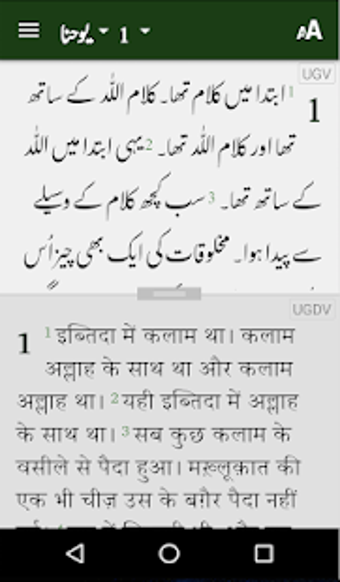 یوحنا 1 AA
UGV
1 1 ابتدا میں کلام تھا۔ کلام اللہ کے ساتھ
تھا اور کلام اللہ تھا۔ 2 یہی ابتدا میں اللہ
کے ساتھ تھا۔ 3 سب کچھ کلام کے وسیلے
سے پیدا ہوا۔ مخلوقات کی ایک بھی چیز اُس
UGDV
1 1 इब्तिदा में कलाम था। कलाम
अल्लाह के साथ था और कलाम
अल्लाह था। 2 यही इब्तिदा में अल्लाह
के साथ था। 3 सब कुछ कलाम के
वसीले से पैदा हुआ। मख़्लूक़ात की
एक भी चीज़ उस के बग़ैर पैदा नहीं